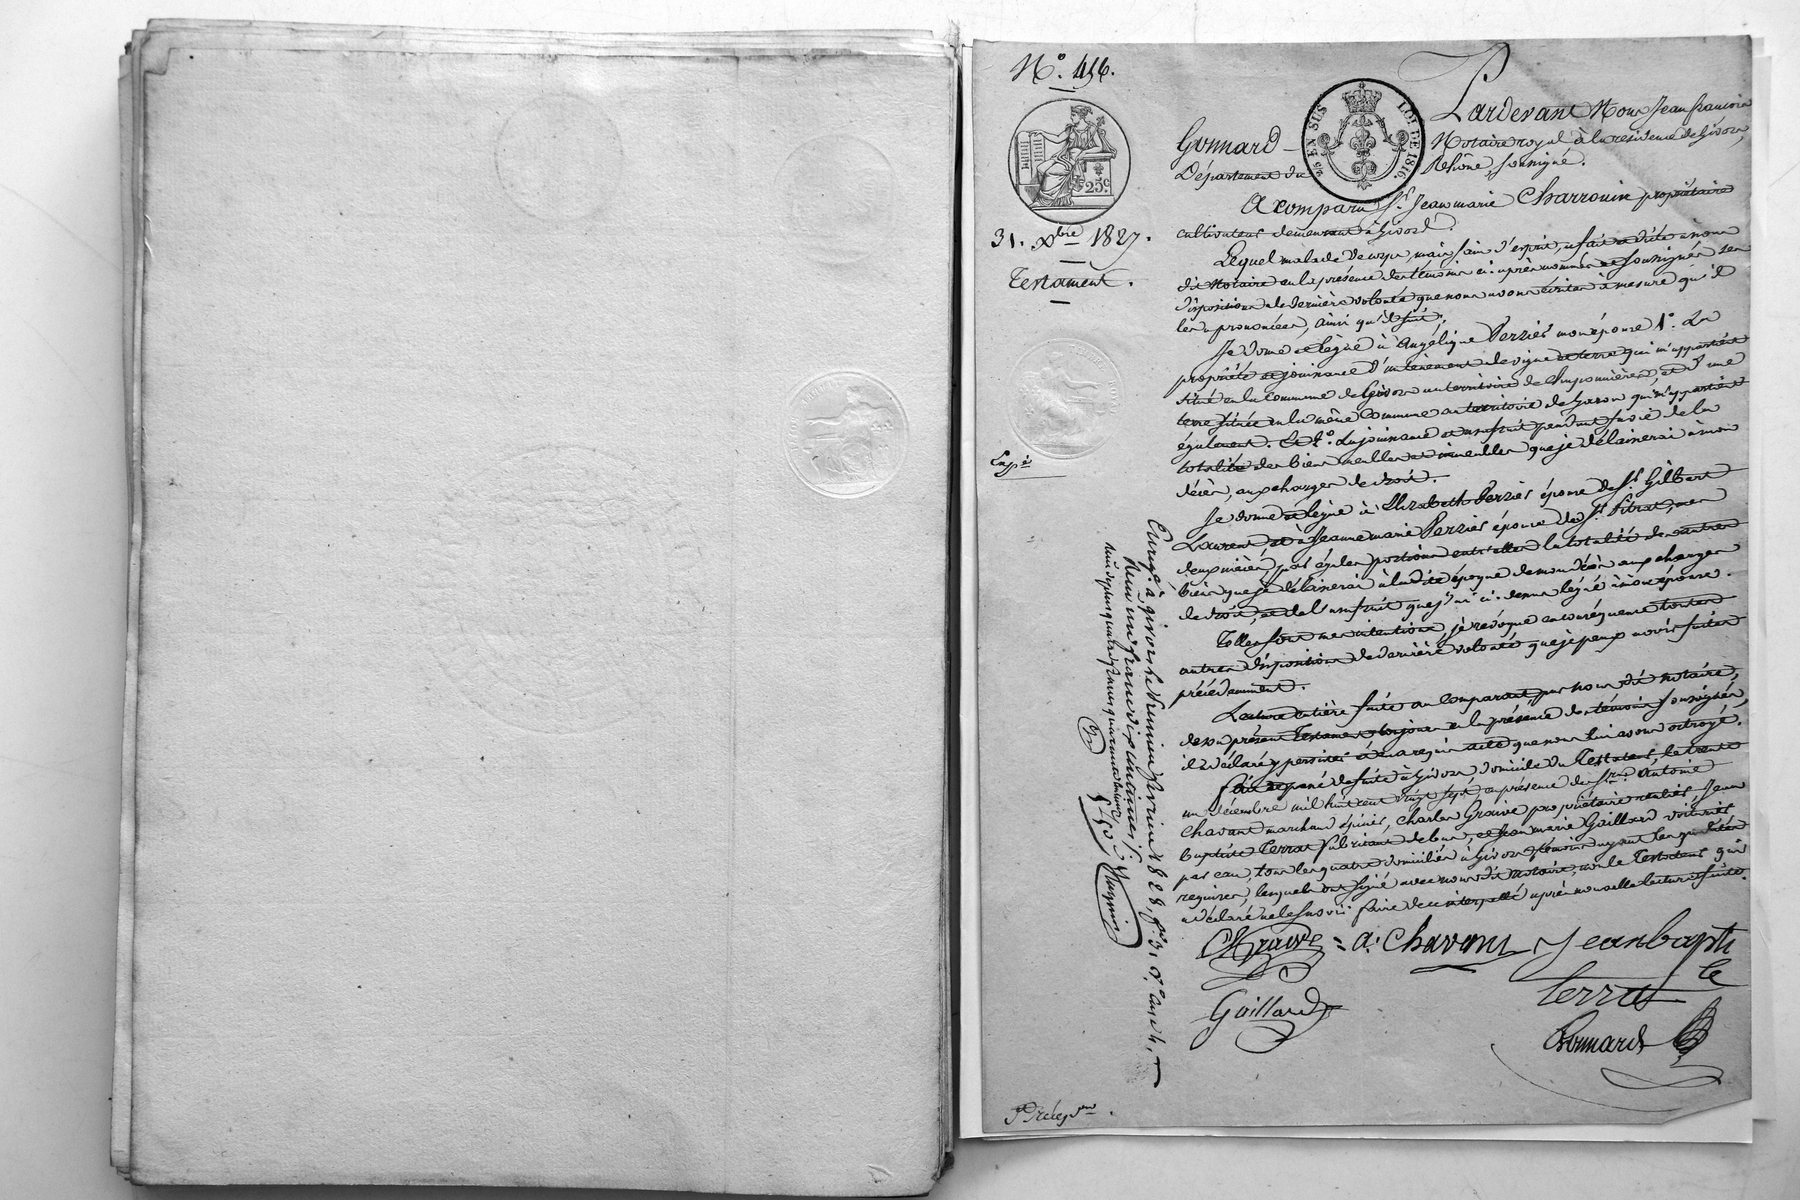 N.° 456.
25 EN SUS
LOI DE 1816.
25c
31. Xbre 1827.
Testament.
Expé
Pardevant Nous Jean françois
Gonnard Notaire royal à la résidence de Givors,
Département du Rhône soussigné.
A comparu Sr. Jean marie Charrouin propriétaire
cultivateur demeurant à Givors.
Lequel malade de corps, mais sain d'esprit, a fait et dicté à nous
dit Notaire en la présence des témoins ci-après nommés et soussignés ses
dispositions de dernière volonté que nous avons écrites à mesure qu'il
les a prononcées, ainsi qu'il suit,
Je donne et lègue à Angélique Perzies mon épouse 1.° La
propriété et jouissance d'un tènement de vigne et terre qui m'appartient
situé en la Commune de Givors au territoire de , et d'une
terre située en la même Commune au territoire de qui m'appartient
également. Et 2.° La jouissance et usufruit pendant sa vie de la
totalité des biens meubles et immeubles que je délaisserai à mon
décès, aux charges de droit.
Je donne et lègue à Elizabeth Perzies épouse de Sr. Gilbert
Laurent et à Jeanne marie Perzies épouse de Sr. Pitrat, mes
deux nièces, par égales portions entr'elles la totalité des autres
biens que je délaisserai à ladite époque de mon décès aux charges
de droit, et de l'usufruit que j'ai ci-devant légué à mon épouse.
Telles sont mes intentions, je révoque en conséquence toutes
autres dispositions de dernière volonté que je peux avoir faites
précédemment.
Lecture entière faite au comparant, par nous dit notaire,
de son présent Testament toujours en la présence des témoins soussignés,
il a déclaré y persister et en a requis acte que nous lui avons octroyé.
Fait et passé de suite à Givors domicile du Testateur, le trente
un décembre mil huit cent vingt sept, en présence de Srs. Antoine
Chavant marchand épicier, Charles Graive propriétaire rentier, Jean
baptiste Terrat fabricant de bas, et Jean marie Goillard voiturier
par eau, tous les quatre domiciliés à Givors témoins ayant les qualités
requises, lesquels ont signé avec nous dit notaire, non le Testateur qui
a déclaré ne le savoir faire de ce interpellé après nouvelle lecture faite.
Ch Graive = A. Chavant Jean bapti
te
Terrat
Goillard
Gonnard
Enregé à givors le huit janvier 1828, fo. 31, Ro. case 4,
Reçu un franc dix centimes